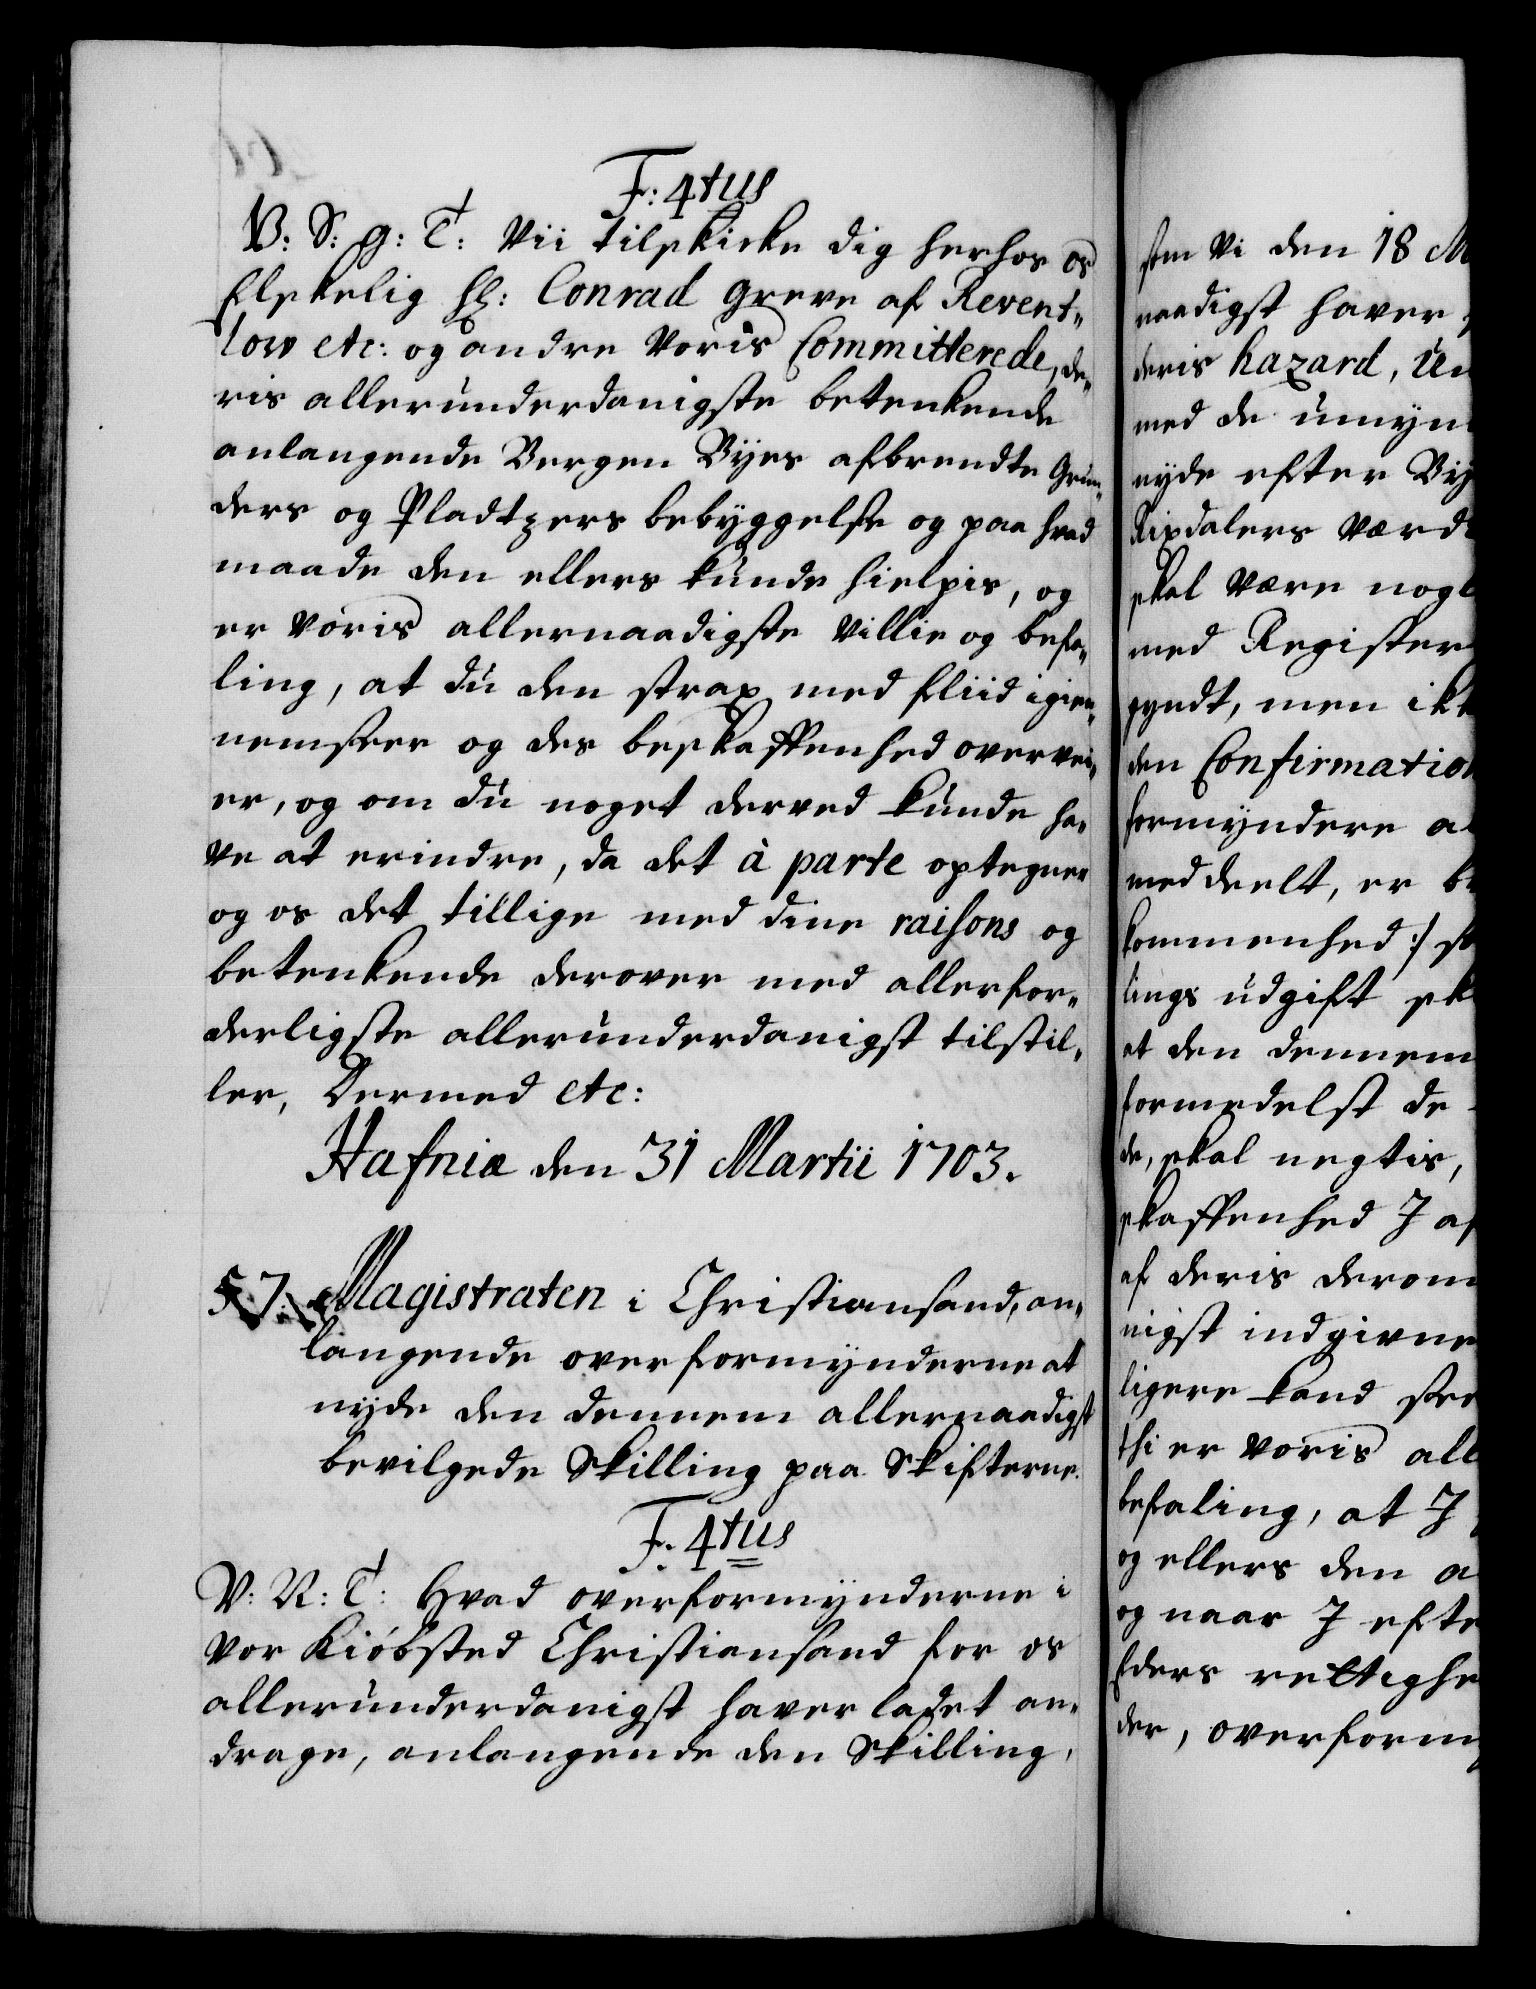 F: 4tus
V: S: g: T: Vii tilskicke dig herhos os
Elskelig H: Conrad Greve af Revent„
low etc: og andre Voris Committerede, de„
ris allerunderdanigste betenkende
anlangende Bergen Byes afbrendte Grun„
ders og Pladtzers bebyggelse og paa hvad
maade den ellers kunde hielpis, og
er Voris allernaadigste Villie og befa„
ling, at du den strax med fliid igien„
nemseer og des beskaffenhed overvei„
er, og om du noget derved kunde ha„
ve at erindre, da det à parte optegner
og os det tillige med dine raisons og
betenkende derover med allerfor„
derligste allerunderdanigst tilstil„
ler, Dermed etc:
Hafniæ den 31 Martii 1703.
57. Magistraten i Christiansand, an„
langende overformynderne at
nyde den dennem allernaadigst
bevilgede Skilling paa Skifterne.
F: 4tus
V: N: T: Hvad overformynderne i
vor Kiöbsted Christiansand for os
allerunderdanigst haver ladet an„
drage, anlangende den Skilling,
som Vi den 18 M
naadigst haver
deris hazard, Um
med de umyn
nyde efter By
Rixdalers Værd
skal Være nog
med Register
gyndt, men ikk
den Confirmation
formyndere a
meddeelt, er be
kommenhed :/ st
lings udgift sk
at den dennem
formedelst de
de, skal negtis,
skaffenhed J af
af deris derom
nigst indgivne
ligere kand see
thi er Voris all
befaling, at J
og ellers den a
og naar J efte
fders rettighe
der, overformy